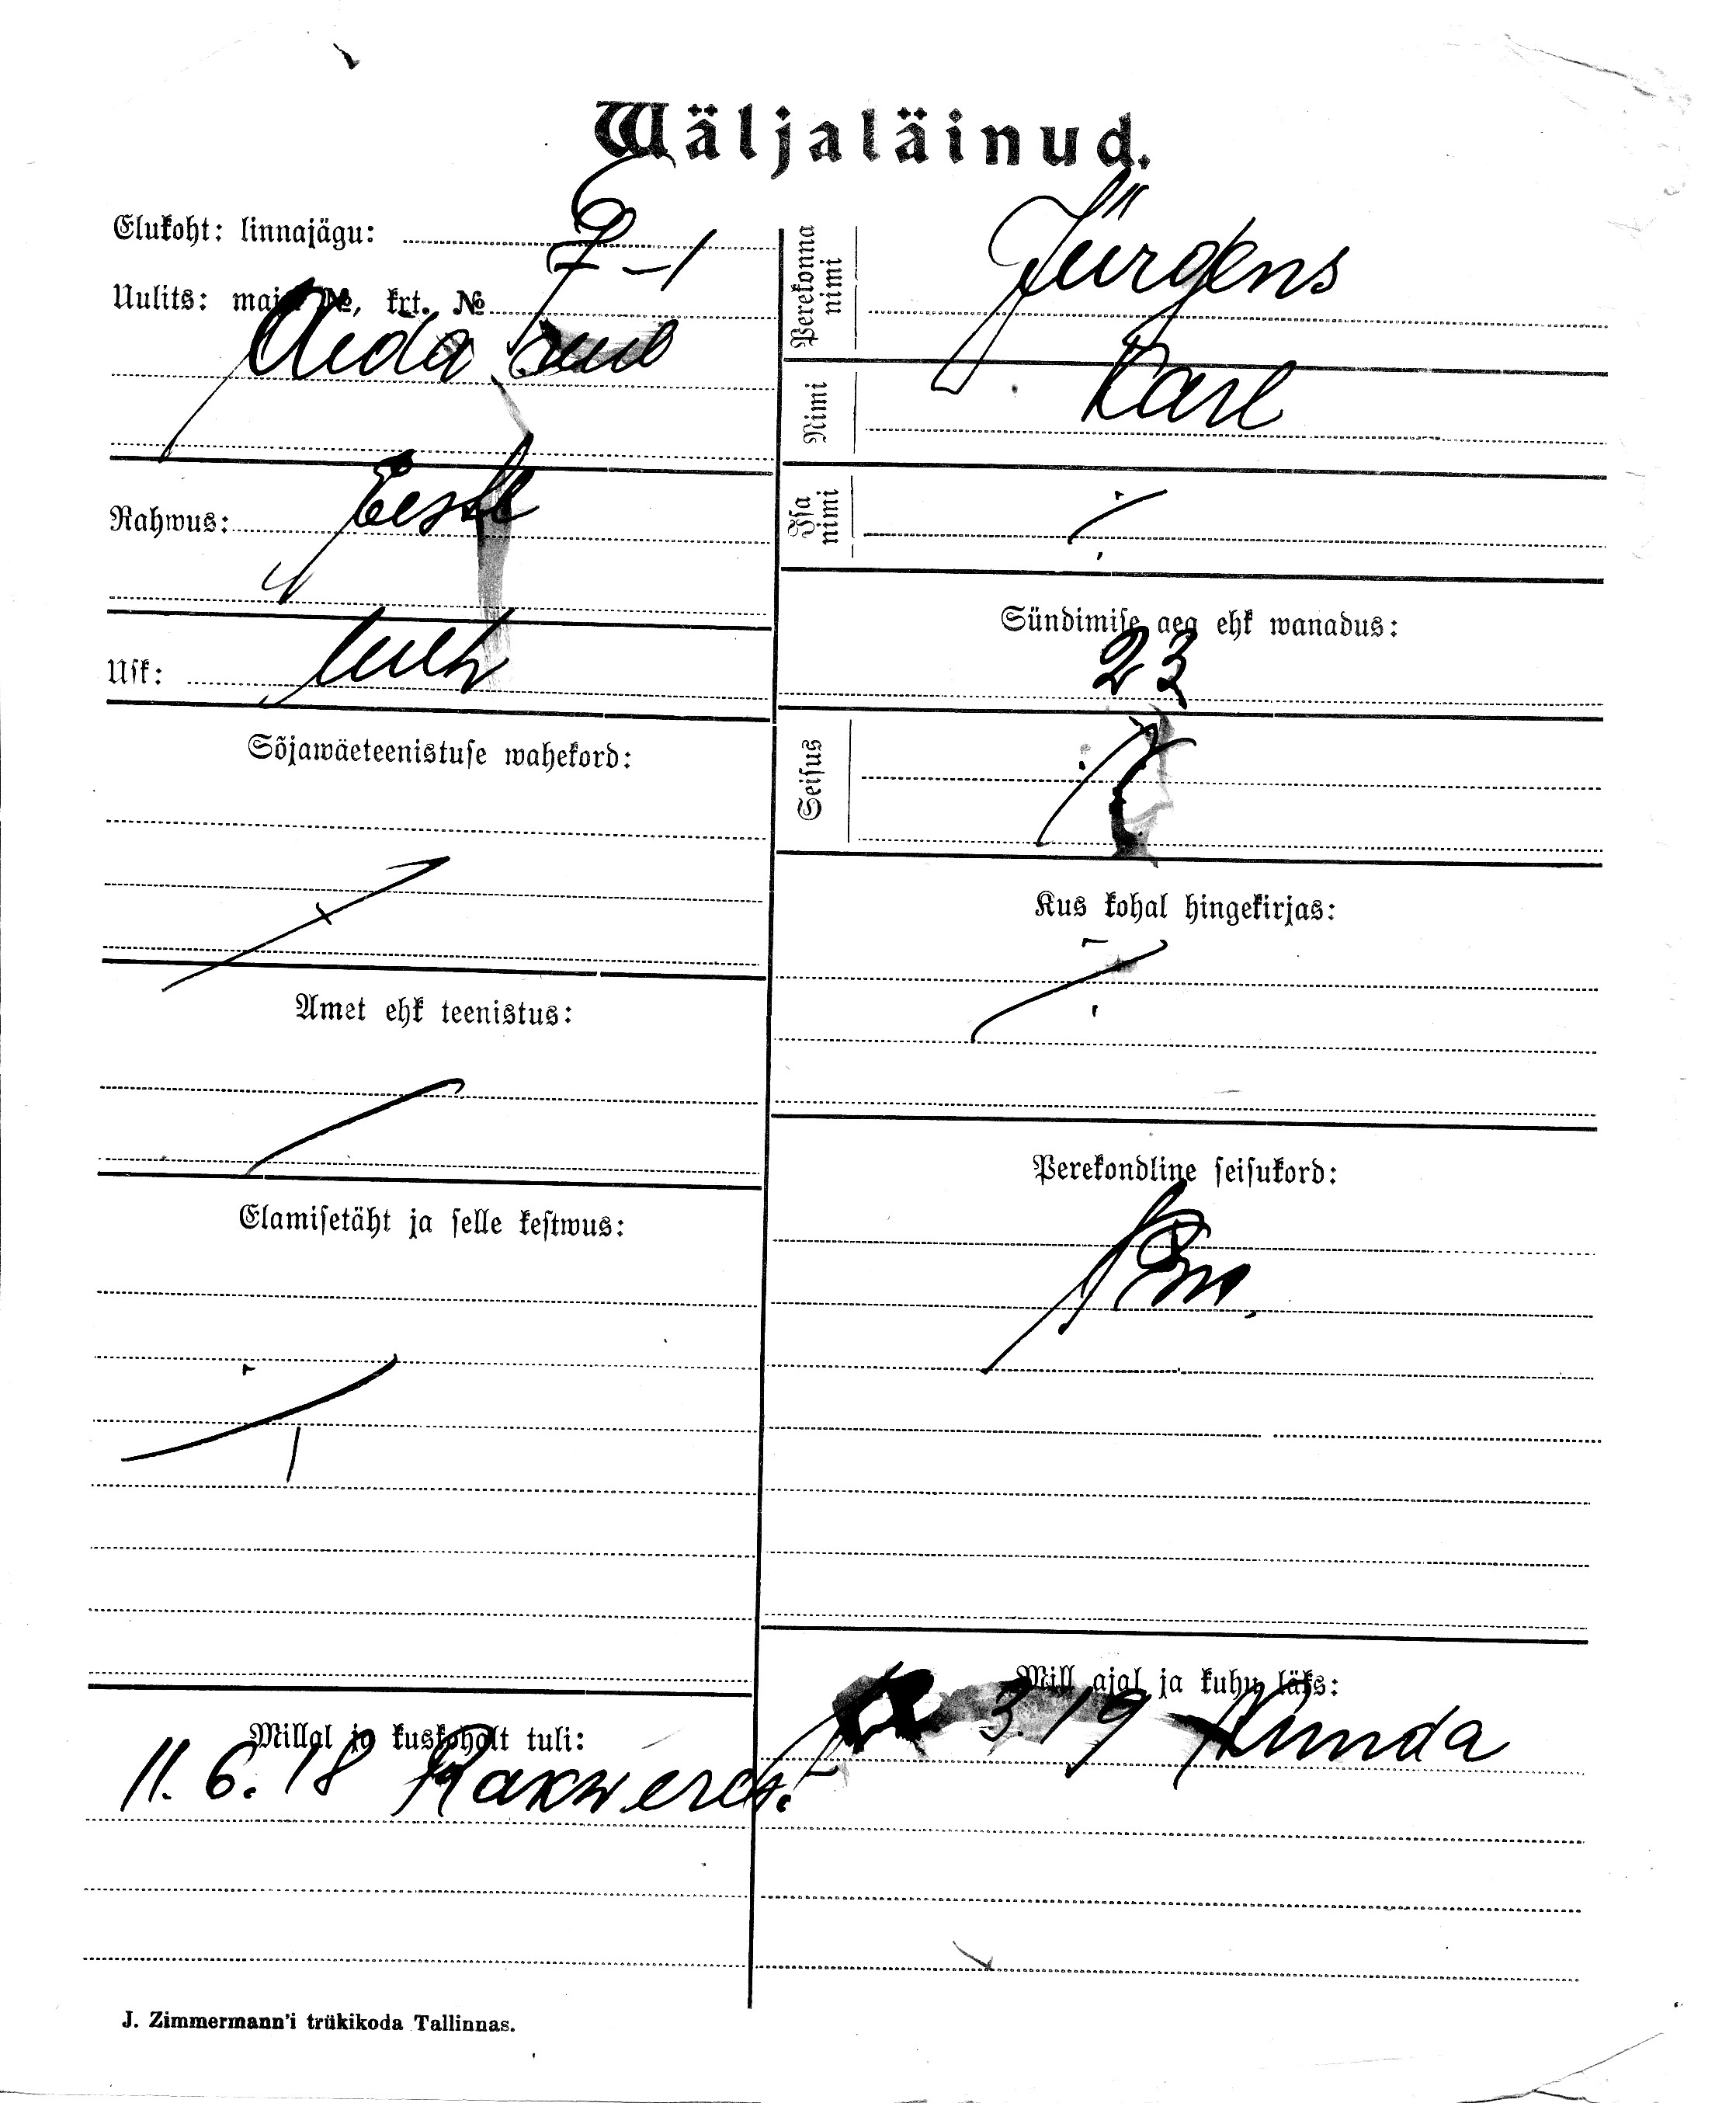 Wäljaläinud.
Elukoht: linnajägu:
7-1
Uulits: maja №, krt. №
Aida
Rahwus: Eesti
Usk: luth
Sõjawäeteenistuse wahekord:
Amet ehk teenistus:
Elamisetäht ja selle kestwus:
Millal ja kuskohalt tuli:
11. 6. 18 Rakwerest.
Perekonna nimi
Jürgens
Nimi
Karl
Isa nimi
Sündimise aeg ehk wanadus:
23
Seisus
Kus kohal hingekirjas:
Perekondline seisukord:
Mill ajal ja kuhu läks:
3. 19 Kunda
J. Zimmermann'i trükikoda Tallinnas.